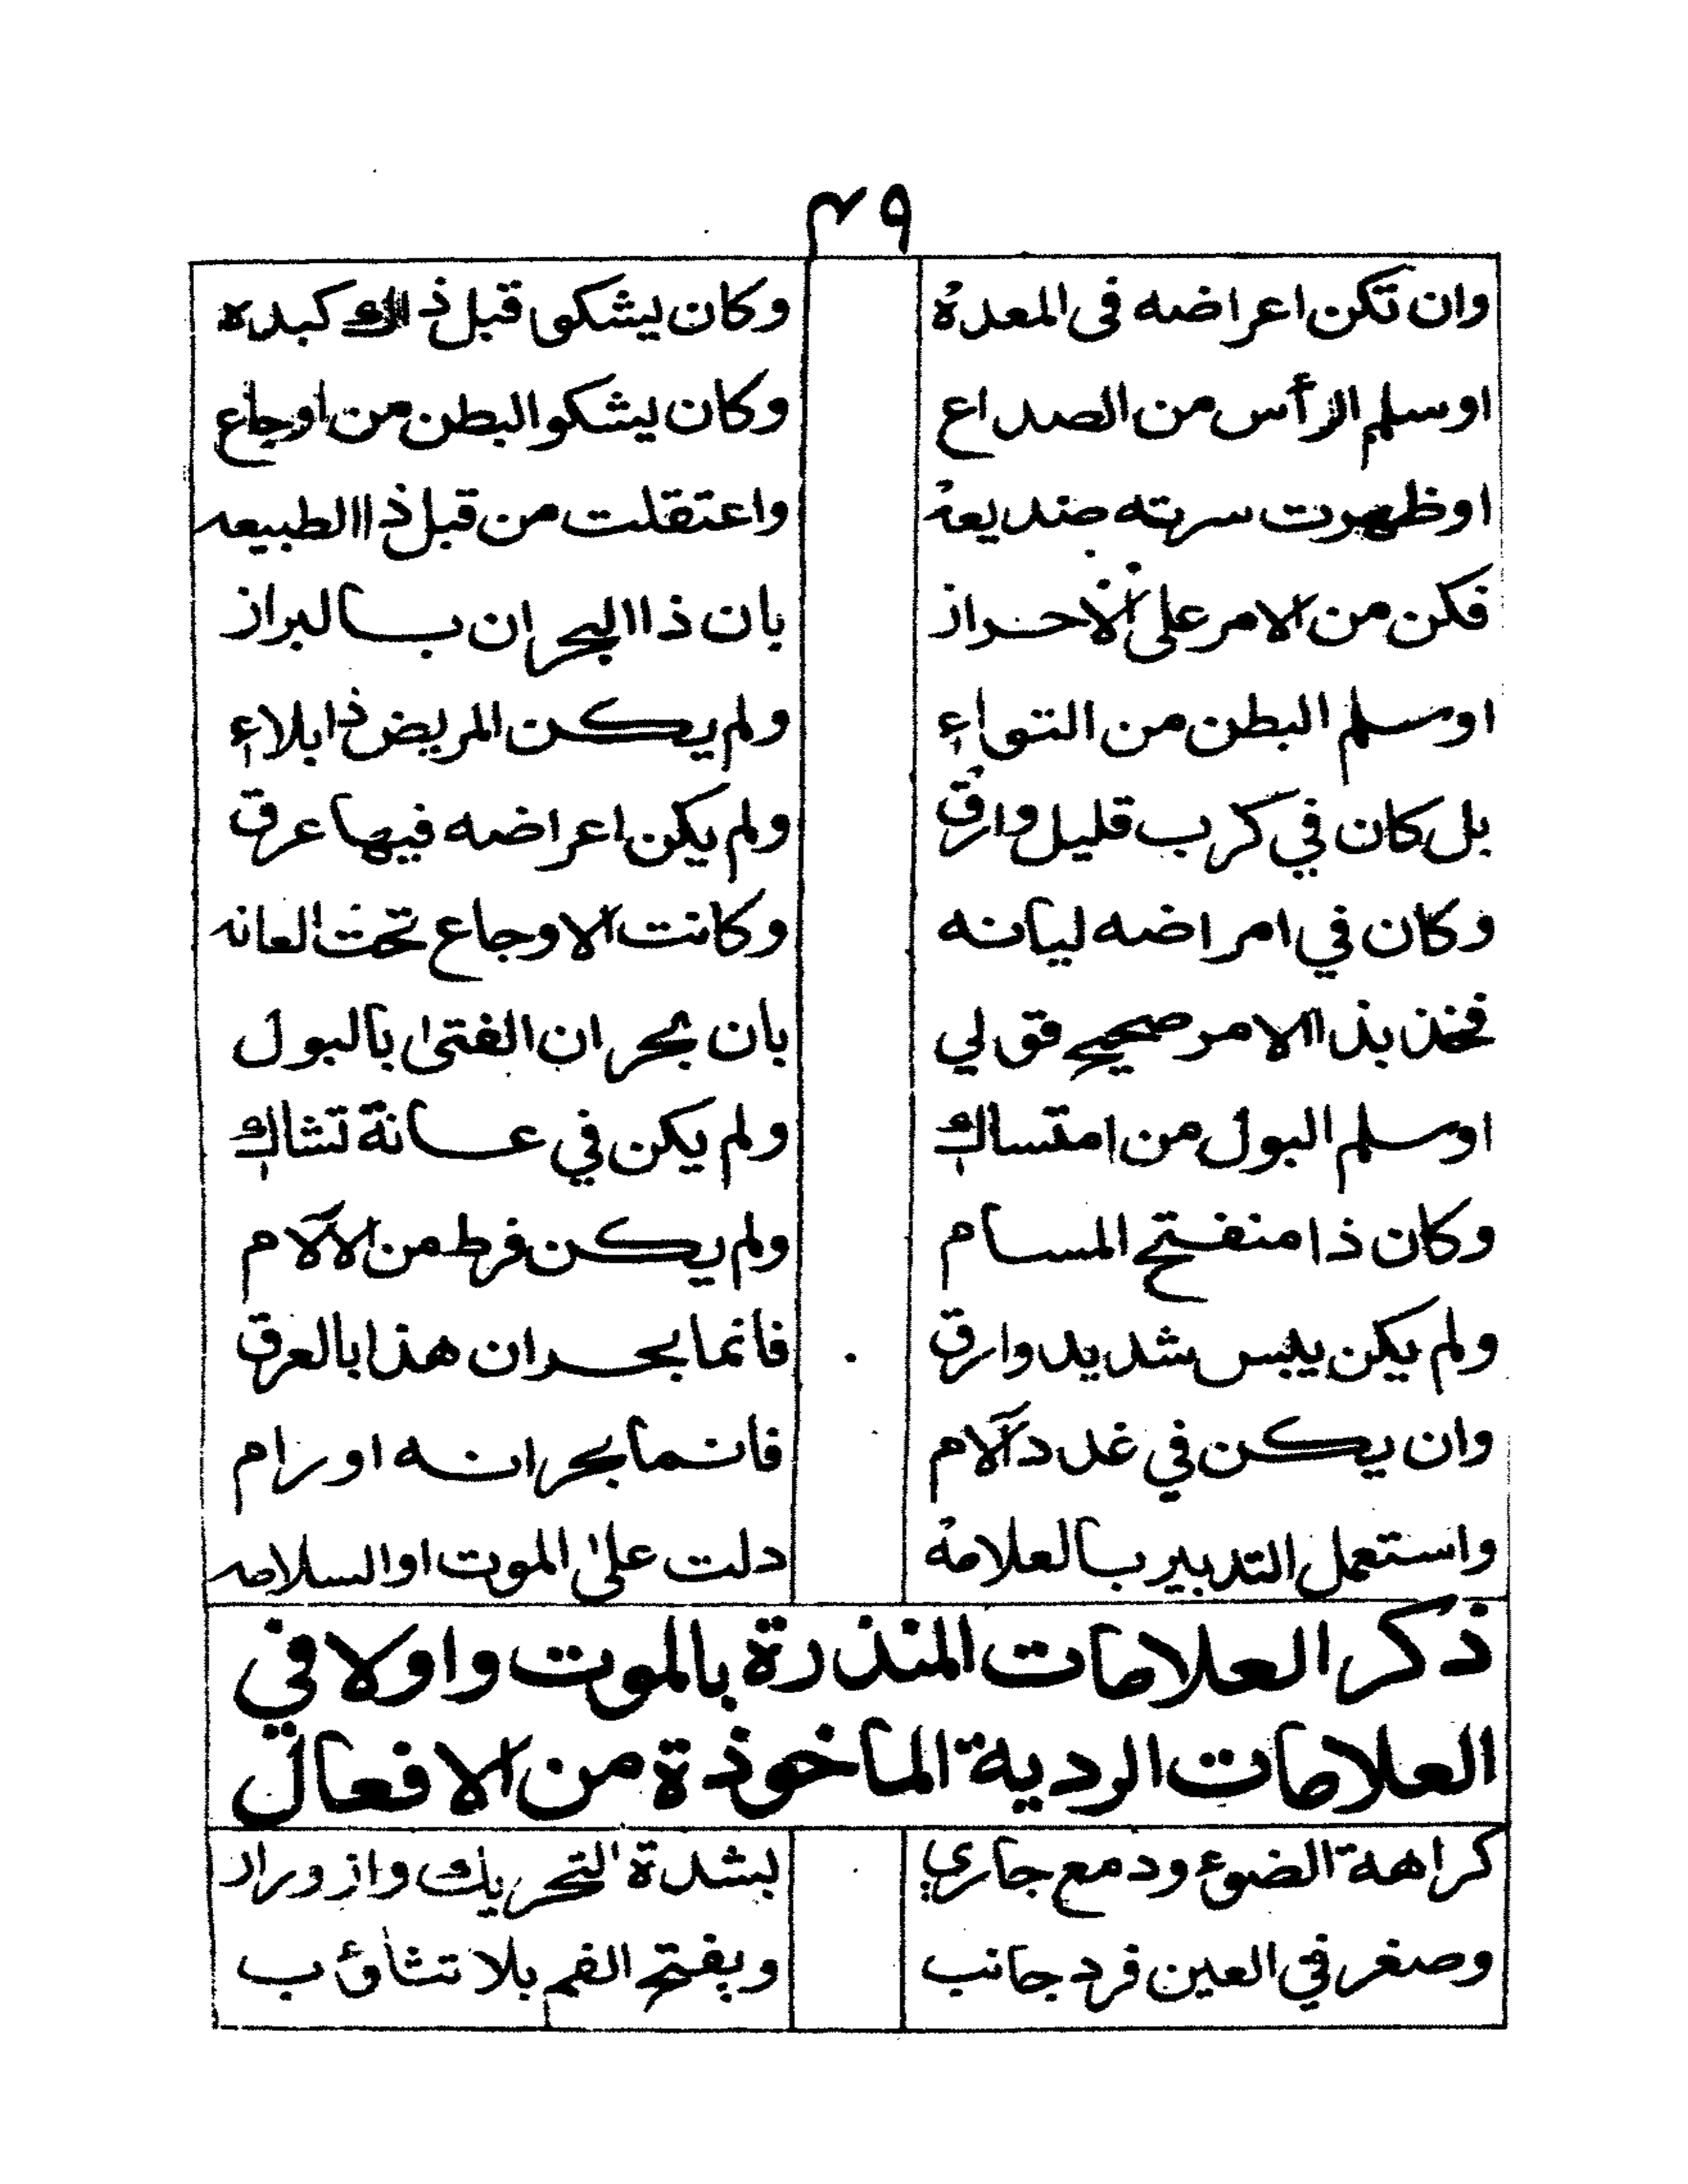 ٤٩
وان تكن اعراضه فى المعدة وكان يشكو قبل ذالك كبده
اوسلم الرأس من الصداع وكان يشكو البطن من اوجاع
اوظهرت سرته منديعة واعتقلت من قبل ذا الطبيعه
فكن من الامر على الاحراز بان ذا البحران بالبراز
اوسلم البطن من التواء ولم يكن المريض ذا بلاء
بل كان في كرب قليل وارق ولم يكن اعراضه فيها عرق
وكان في امراضه ليانه وكانت الاوجاع تحت العانه
فخذ بذا الامر صحيح قولي بان بحران الفتى بالبول
اوسلم البول من امتساك ولم يكن في عانة تشاك
وكان ذا منفتح المسام ولم يكن فرط من الآلام
ولم يكن يبس شديد وارق فانما بحران هذا بالعرق
وان يكن في غدد آلام فانما بحرانه اورام
واستعمل التدبير بالعلامة دلت على الموت او السلامه
ذكر العلامات المنذرة بالموت واولا في
العلامات الردية الماخوذة من الافعال
كراهة الضوء ودمع جاري بشدة التحريك وازورار
وصغر في العين فرد جانب ويفتح الفم بلا تثاؤب